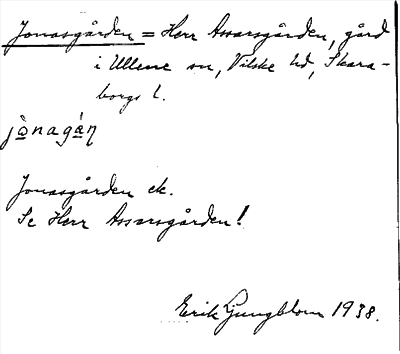 Jonasgården = Herr Assarsgården, gård
i Ullene sn, Vilske hd, Skara-
borgs l.
jònagán
Jonasgården ek.
Se Herr Assarsgården!
Erik Ljungblom 1938.